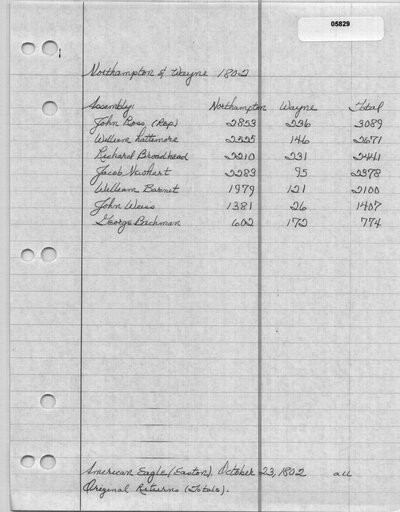 05829
Northampton & Wayne 1802
Assembly: Northampton Wayne Total
John Ross (Rep) 2853 236 3089
William Lattimore 2525 146 2671
Richard Broadhead 2210 231 2441
Jacob Newhart 2283 95 2378
William Barnet 1979 121 2100
John Weiss 1381 26 1407
George Bachman 602 172 774
American Eagle (Easton). October 23, 1802 all
Original Returns (Totals).